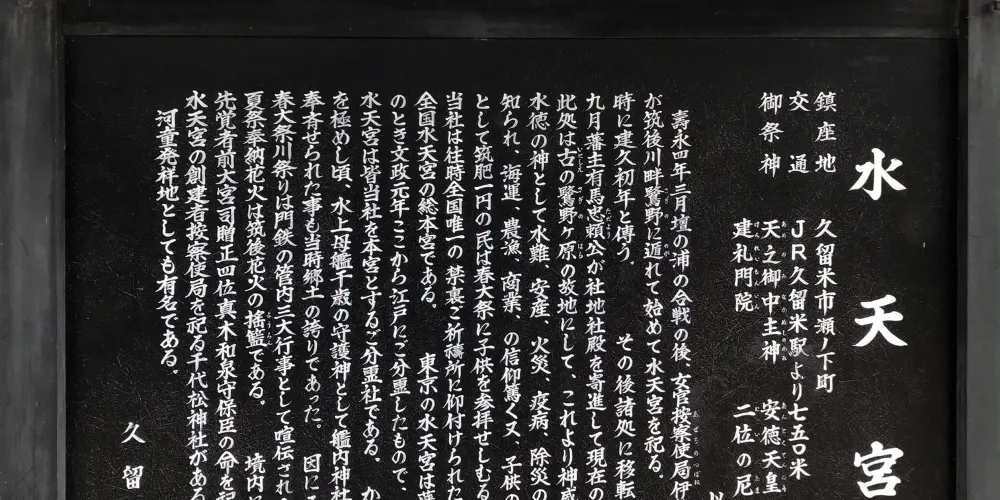 水天宮
鎮座地 久留米市瀬ノ下町
交通 JR久留米駅より七五〇米
御祭神 天之御中主神 安徳天皇
建礼門院 二位の尼
壽永四年三月壇の浦の合戦の後、女官按察使局伊
が筑後川畔鷺野に遁れて始めて水天宮を祀る。
時に建久初年と傳う。 その後諸処に移転
九月藩主有馬忠頼公が社地社殿を寄進して現在の
此処は古の鷺野ヶ原の故地にして、これより神威
水徳の神として水難、安産、火災、疫病、除災の
知られ、海運、農漁、商業、の信仰篤く又、子供の
として筑肥一円の民は春大祭に子供を参拝せしむる
当社は往時全国唯一の禁裏ご祈禱所に仰付けられた
全国水天宮の総本宮である。 東京の水天宮は
のとき文政元年ここから江戸にご分霊したもので、
水天宮は皆当社を本宮とするご分霊社である。 か
を極めし頃、水上母艦千歳の守護神として艦内神社
奉斉せられた事も当時郷土の誇りであった。 因に
春大祭川祭りは門鉄の管内三大行事として喧伝され
夏祭奉納花火は筑後花火の揺籃である。 境内に
先覚者前大宮司贈正四位真木和泉守保臣の命を祀
水天宮の創建者按察使局を祀る千代松神社がある
河童発祥地としても有名である。
久留